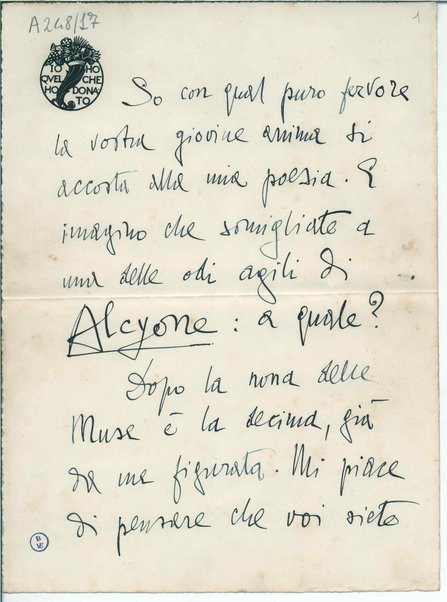 A248/17
1
IO HO
QUEL CHE
HO DONA
TO
So con qual puro fervore
la vostra giovine anima si
accosta alla mia poesia. E
imagino che somigliate a
una delle odi agili di
Alcyone: a quale?
Dopo la nona delle
Muse è la decima, già
da me figurata. Mi piace
di pensare che voi siete